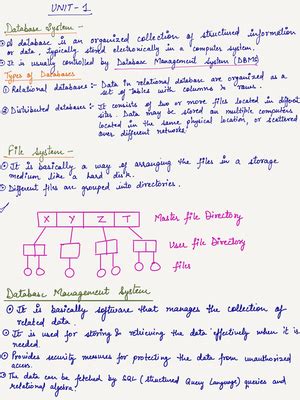 UNIT-1
Database System -
A database is an organized collection of structured information
or data, typically stored electronically in a computer system.
It is usually controlled by Database Management System (DBMS)
Types of Databases
1) Relational databases :- Data in relational database are organized as a
set of tables with columns & rows.
2) Distributed databases :- It consists of two or more files located in different
sites. Data may be stored on multiple computers
located in the same physical location, or scattered
over different networks.
File System -
It is basically a way of arranging the files in a storage
medium like a hard disk.
Different files are grouped into directories.
X Y Z T Master file Directory
User file Directory
files
Database Management System
It is basically software that manages the collection of
related data.
It is used for storing & retrieving the data effectively when it is
needed.
Provides security measures for protecting the data from unauthorized
access.
The data can be fetched by SQL (Structured Query Language) queries and
relational algebra.